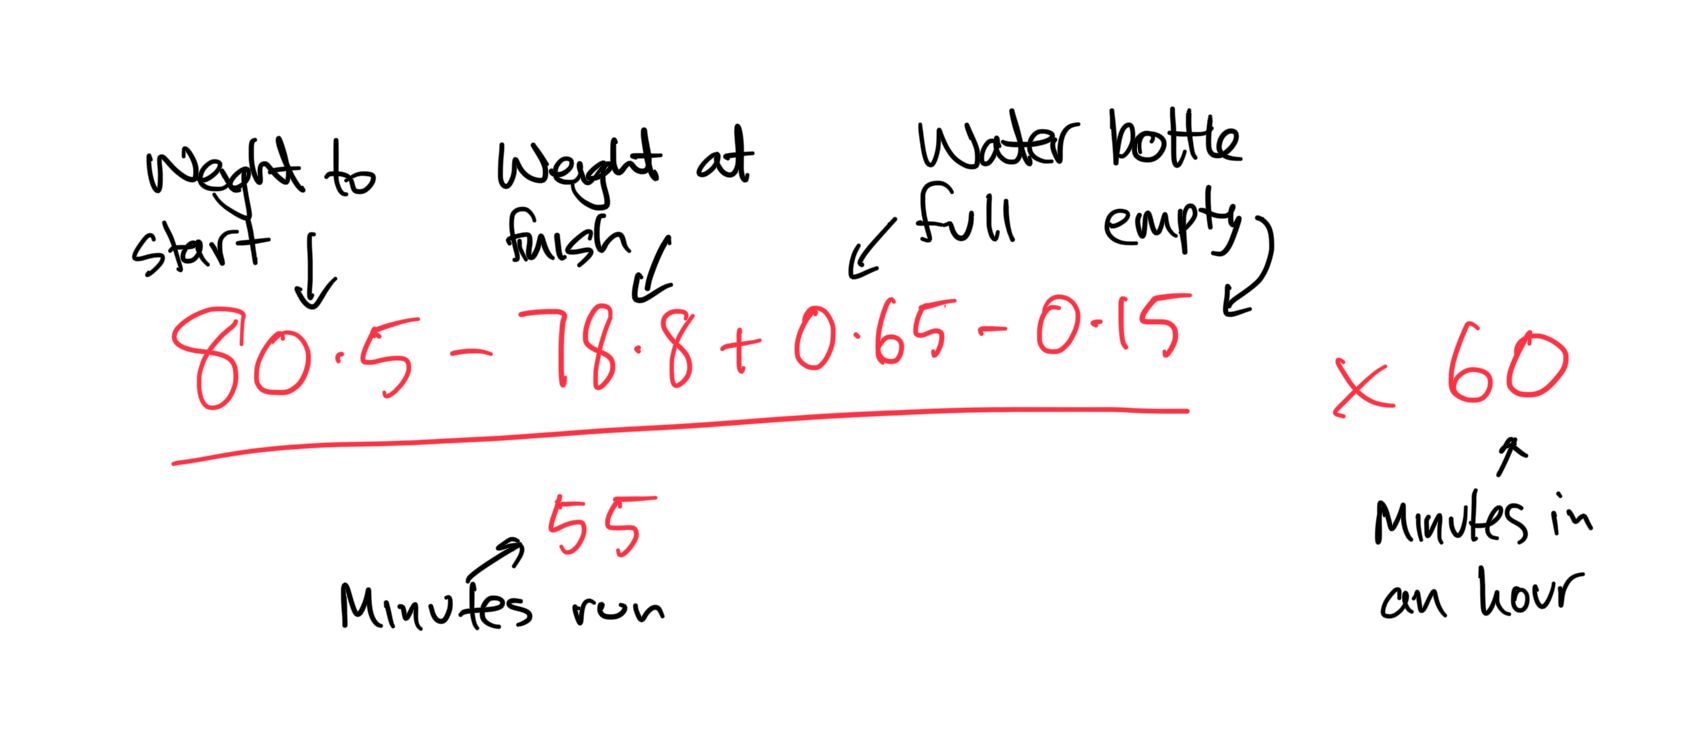 Weight to
start
Weight at
finish
Water bottle
full empty
80.5 - 78.8 + 0.65 - 0.15
x 60
55
Minutes run
Minutes in
an hour